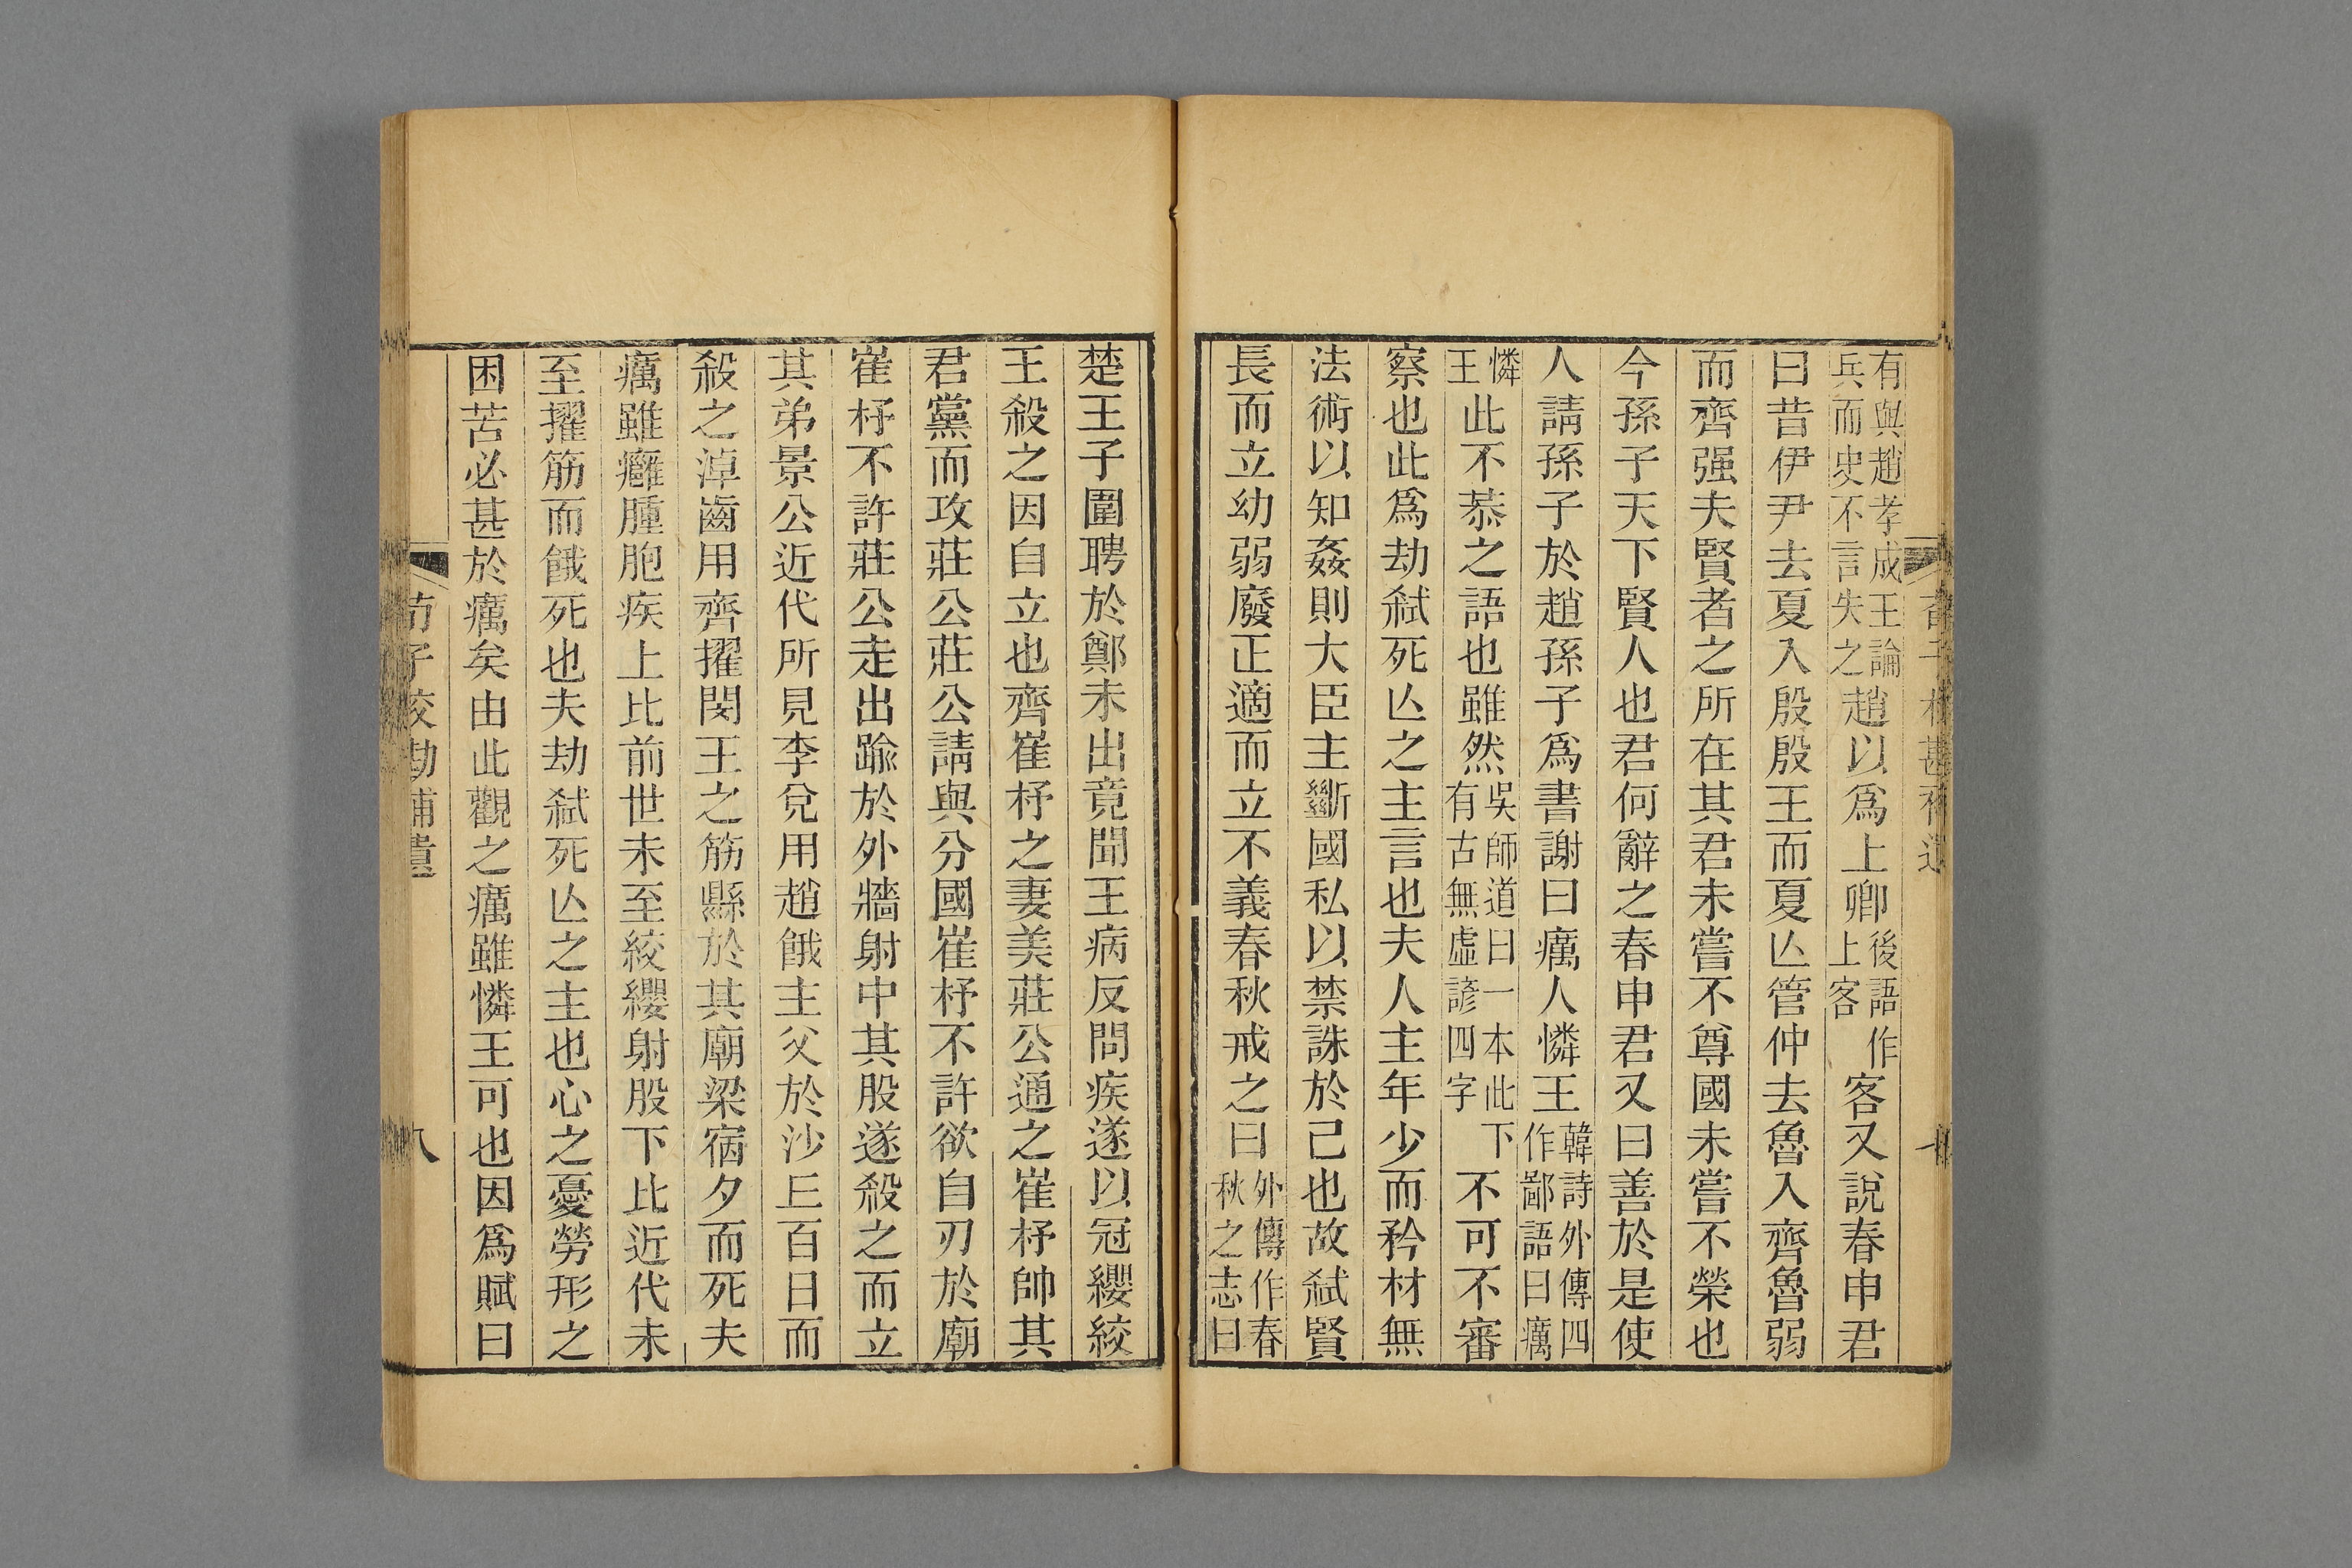 有與趙孝成王論兵而史不言失之趙以爲上卿後語作上客客又說春申君
曰昔伊尹去夏入殷殷王而夏亾管仲去魯入齊魯弱
而齊强夫賢者之所在其君未嘗不尊國未嘗不榮也
今孫子天下賢人也君何辭之春申君又曰善於是使
人請孫子於趙孫子爲書謝曰癘人憐王韓詩外傳四作鄙語曰癘
憐王此不恭之語也雖然吳師道曰一本此下有古無虛諺四字不可不審
察也此爲劫弒死亾之主言也夫人主年少而矜材無
法術以知姦則大臣主斷國私以禁誅於己也故弒賢
長而立幼弱廢正適而立不義春秋戒之曰外傳作春秋之志曰
楚王子圍聘於鄭未出竟聞王病反問疾遂以冠纓絞
王殺之因自立也齊崔杼之妻美莊公通之崔杼帥其
君黨而攻莊公莊公請與分國崔杼不許欲自刃於廟
崔杼不許莊公走出踰於外牆射中其股遂殺之而立
其弟景公近代所見李兌用趙餓主父於沙丘百日而
殺之淖齒用齊擢閔王之筋縣於其廟梁宿夕而死夫
癘雖癰腫胞疾上比前世未至絞纓射股下比近代未
至擢筋而餓死也夫劫弒死亾之主也心之憂勞形之
困苦必甚於癘矣由此觀之癘雖憐王可也因爲賦曰
荀子校勘補遺
八